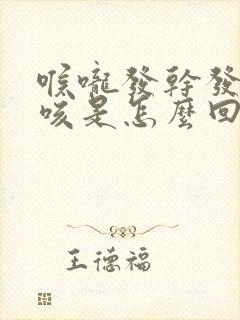 喉嚨發幹發
咳是怎麼回
王德福